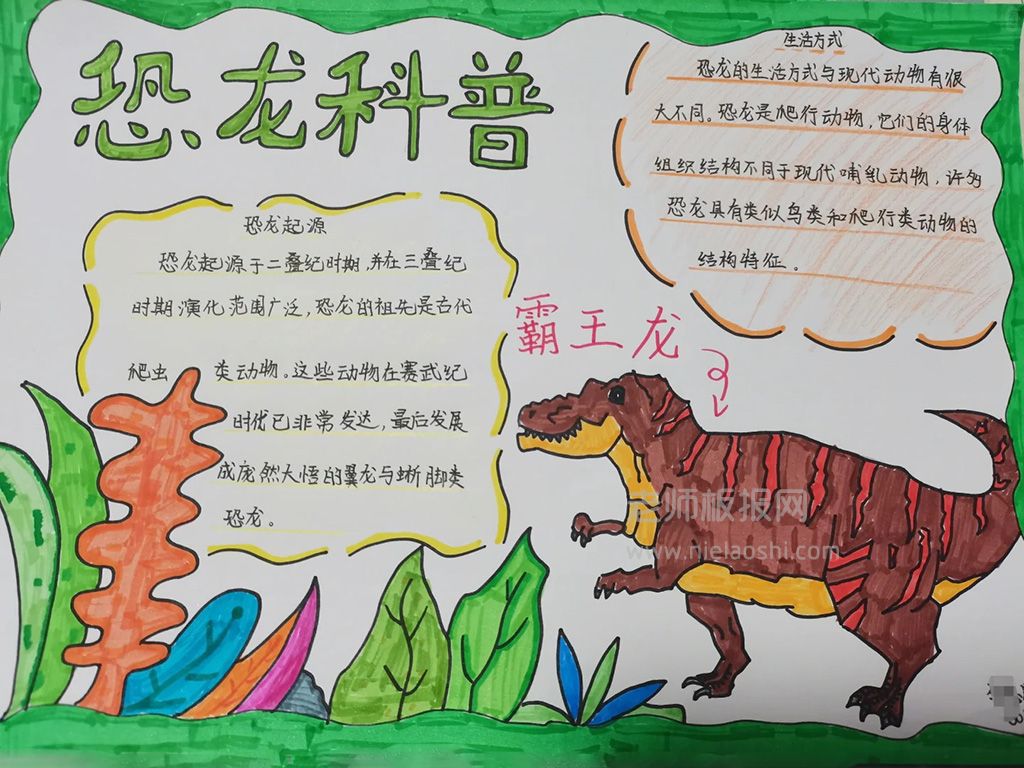 恐龙科普
生活方式
恐龙的生活方式与现代动物有很
大不同。恐龙是爬行动物，它们的身体
组织结构不同于现代哺乳动物，许多
恐龙具有类似鸟类和爬行类动物的
结构特征。
恐龙起源
恐龙起源于二叠纪时期,并在三叠纪
时期演化范围广泛，恐龙的祖先是古代
爬虫 类动物。这些动物在赛武纪
时代已非常发达，最后发展
成庞然大悟的翼龙与蜥脚类
恐龙。
霸王龙
老师板报网
www.nielaoshi.com